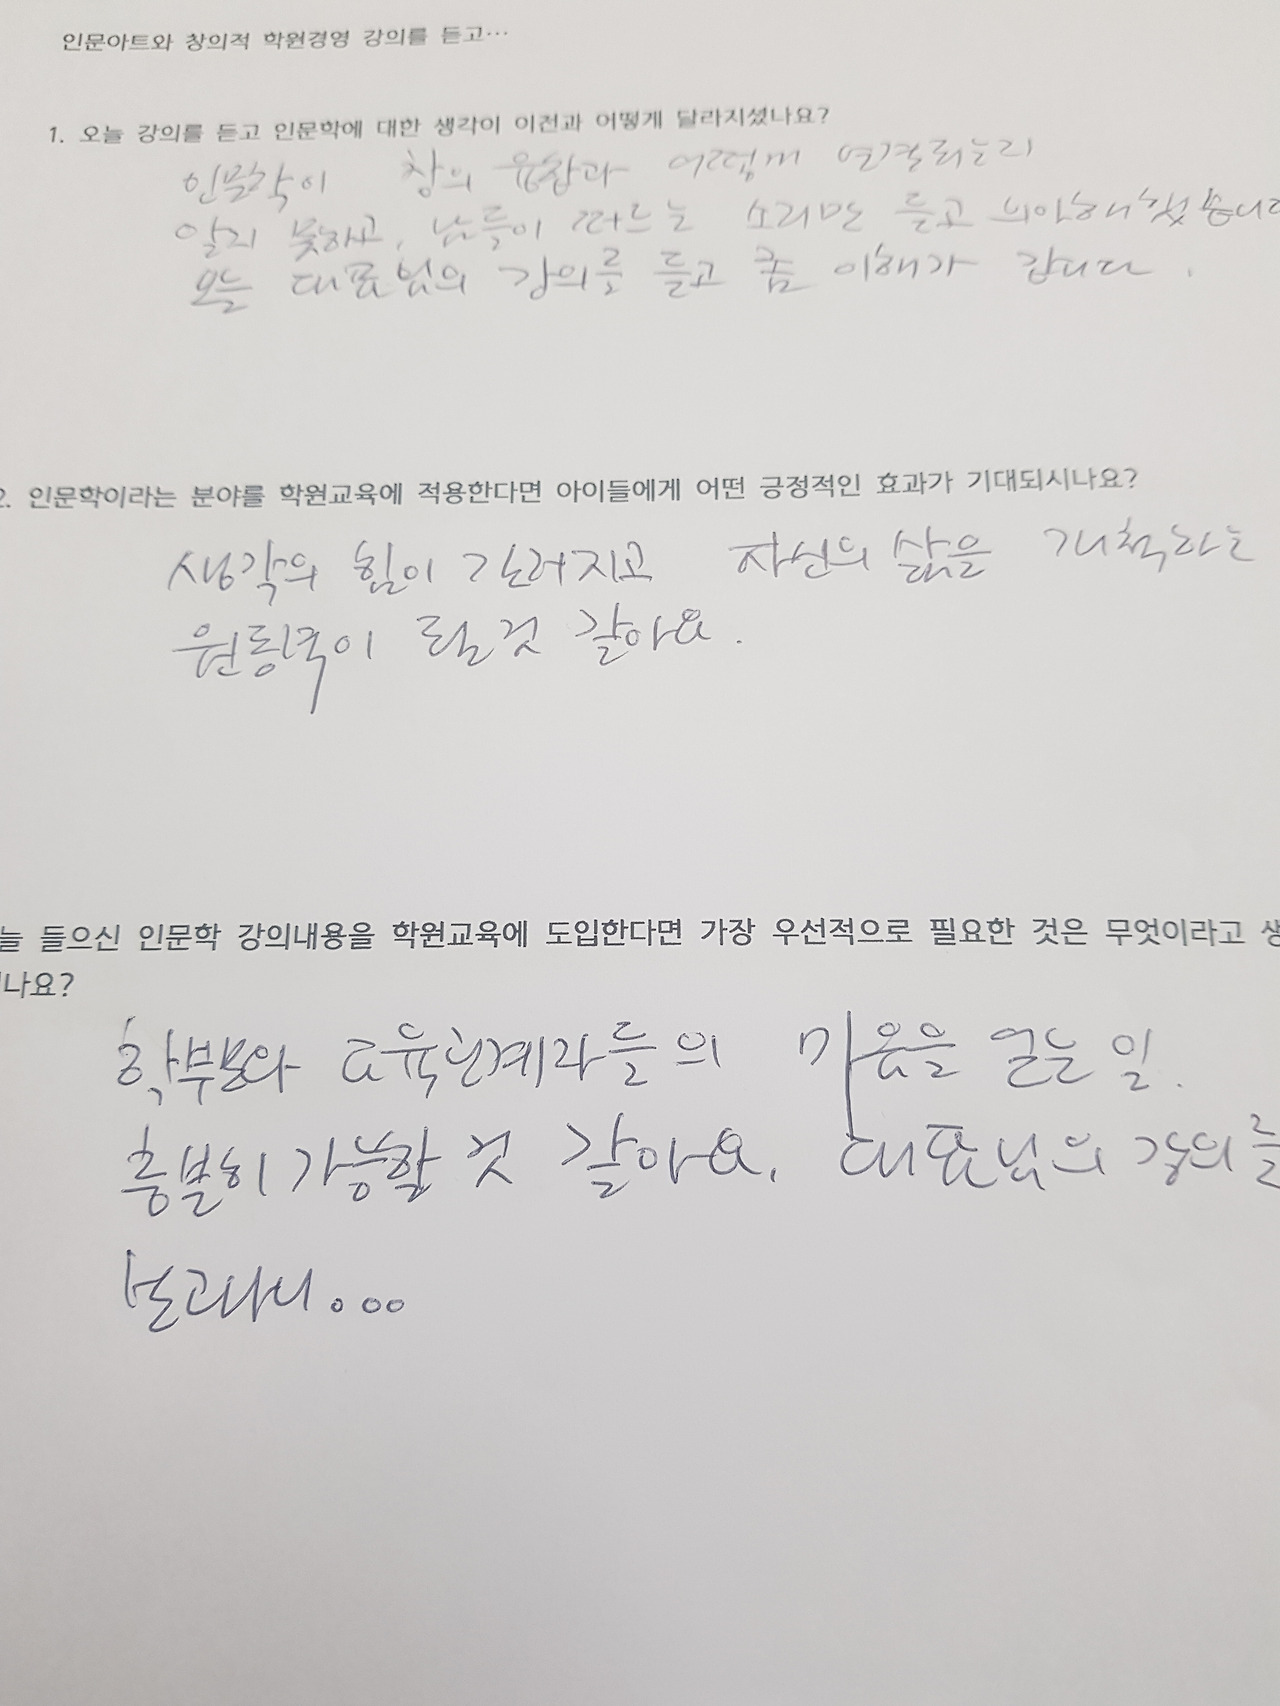 인문아트와 창의적 학원경영 강의를 듣고…
1. 오늘 강의를 듣고 인문학에 대한 생각이 이전과 어떻게 달라지셨나요?
인문학이 창의 융합과 어떻게 연결되는지
알지 못하고, 남들이 떠드는 소리만 듣고 의아해 했습니다
오늘 대표님의 강의를 듣고 좀 이해가 갑니다.
2. 인문학이라는 분야를 학원교육에 적용한다면 아이들에게 어떤 긍정적인 효과가 기대되시나요?
생각의 힘이 길러지고 자신의 삶을 개척하는
원동력이 될것 같아요.
늘 들으신 인문학 강의내용을 학원교육에 도입한다면 가장 우선적으로 필요한 것은 무엇이라고 생
나요?
학부모와 교육관계자들의 마음을 얻는 일.
충분히 가능할 것 같아요. 대표님의 강의를
보고나니...